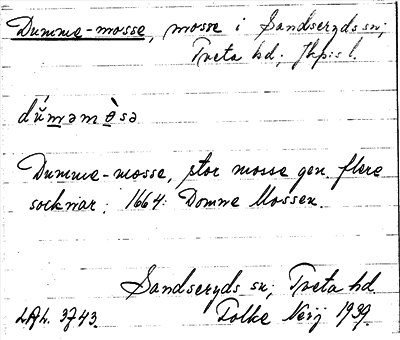 Dumme-mosse, mosse i Sandseryds sn;
Tveta hd; Jkps l.
dŭməm sə
Dumme-mosse, stor mosse gen. flere
socknar; 1664: Domme Mossen.
Sandseryds sn; Tveta hd.
3743. Folke 1939.